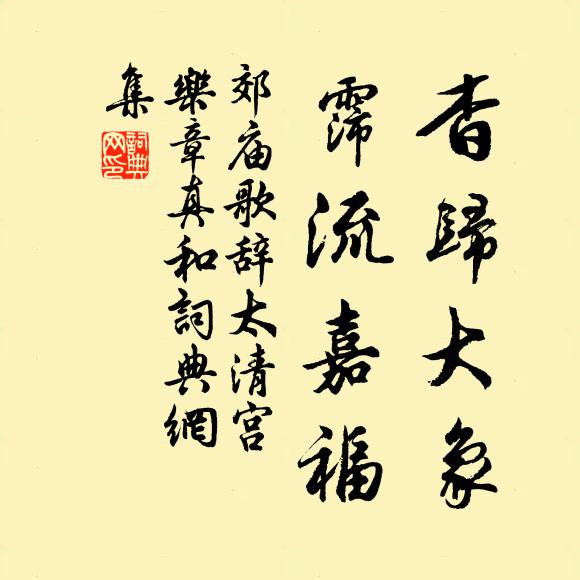 杳歸大象
霈流嘉福
郊庙歌辞太清宫
樂章真和詞典網
集
詞典
网印